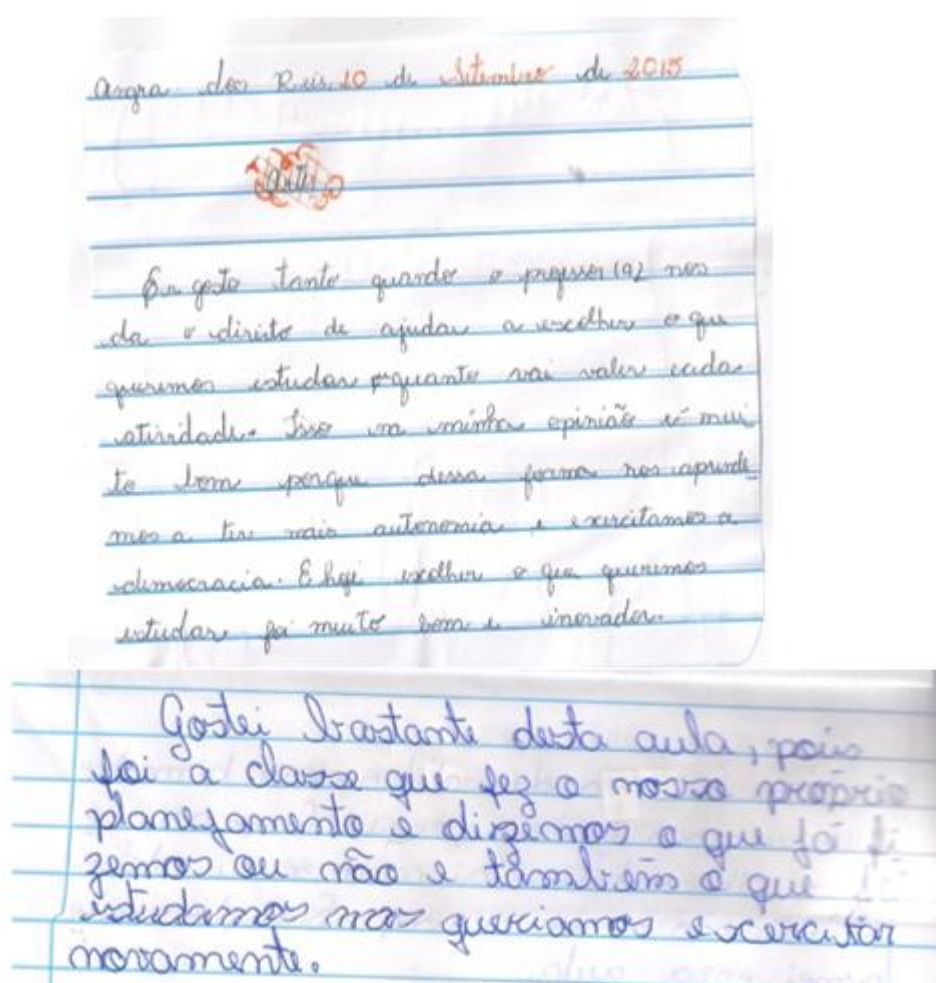 Angra dos Reis, 10 de Setembro de 2015
Eu gosto tanto quando o professor (a) nos
da o direito de ajudar a escolher o que
queremos estudar e quanto vai valer cada
atividade. Isso na minha opinião é mui
to bom porque dessa forma nos aprende
mos a ter mais autonomia e exercitamos a
democracia. E hoje escolher o que queremos
estudar foi muito bom e inovador.
Gostei bastante desta aula, pois
foi a classe que fez o nosso próprio
planejamento e dizemos o que já fi
zemos ou não e também o que
estudamos mas queriamos excercitar
novamente.